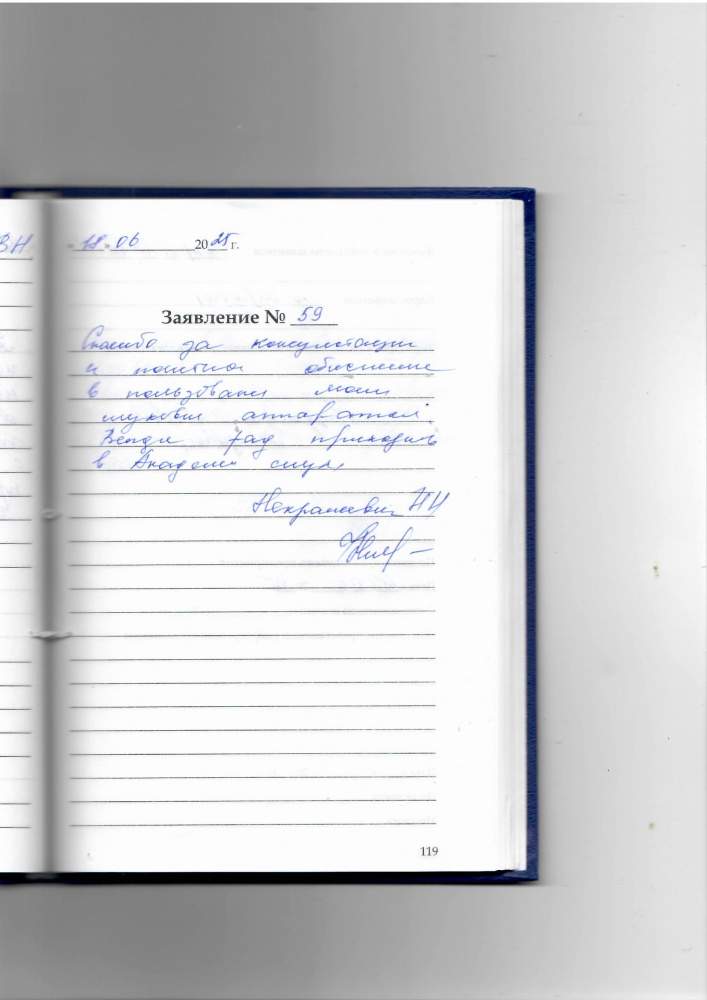 ВН
18 06 2025 г.
Заявление № 59
Спасибо за консультации
и обяснение
в пользовани моим
слуховым аппаратом.
Всегда рад приходить
в Академи слуха
Некрашевич НН
119